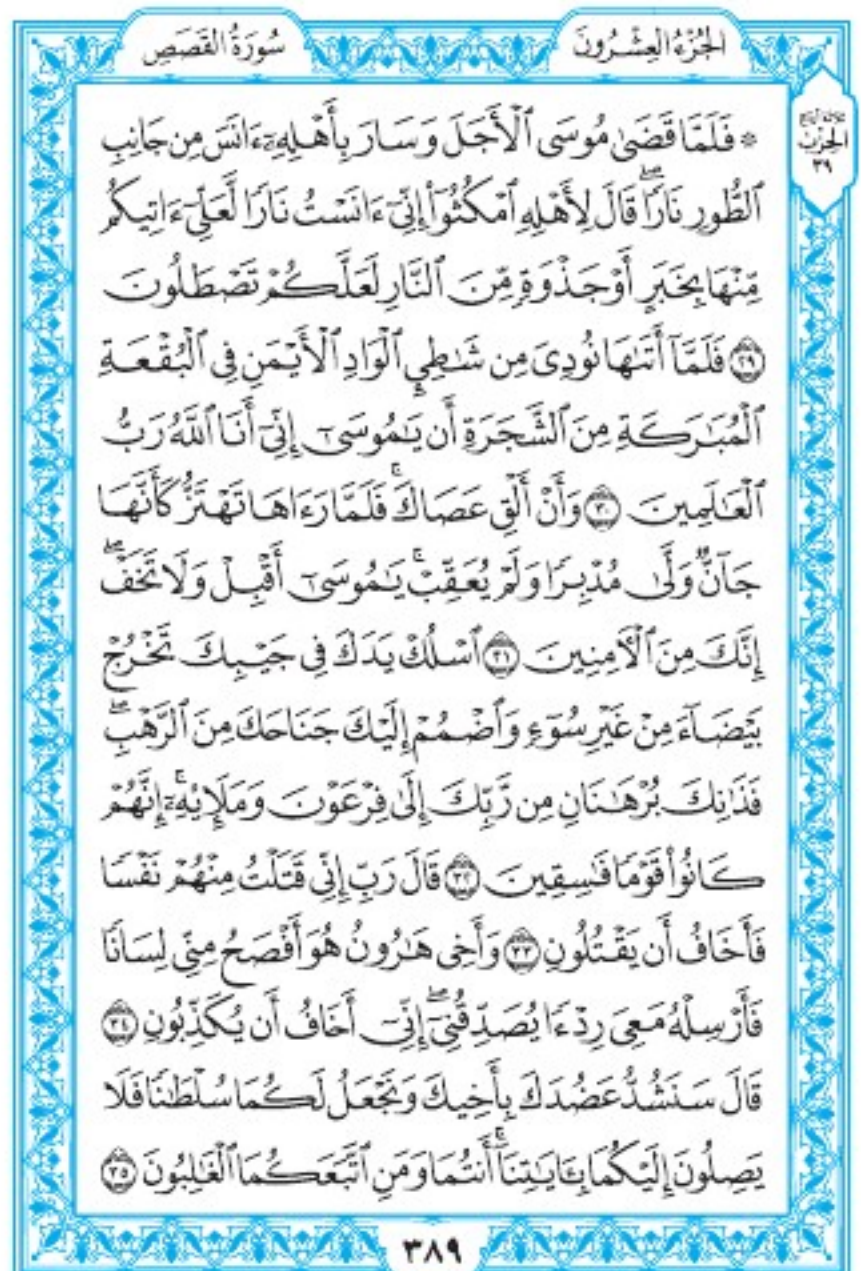 الجُزْءُ العِشْرُونَ
سُورَةُ القَصَصِ
ثلاثة أرباع
الحِزْب
٣٩
۞ فَلَمَّا قَضَىٰ مُوسَى ٱلْأَجَلَ وَسَارَ بِأَهْلِهِۦٓ ءَانَسَ مِن جَانِبِ
ٱلطُّورِ نَارٗاۖ قَالَ لِأَهْلِهِ ٱمْكُثُوٓاْ إِنِّيٓ ءَانَسْتُ نَارٗا لَّعَلِّيٓ ءَاتِيكُم
مِّنْهَا بِخَبَرٍ أَوْ جَذْوَةٖ مِّنَ ٱلنَّارِ لَعَلَّكُمْ تَصْطَلُونَ
٢٩ فَلَمَّآ أَتَىٰهَا نُودِيَ مِن شَٰطِيِٕ ٱلْوَادِ ٱلْأَيْمَنِ فِي ٱلْبُقْعَةِ
ٱلْمُبَٰرَكَةِ مِنَ ٱلشَّجَرَةِ أَن يَٰمُوسَىٰٓ إِنِّيٓ أَنَا ٱللَّهُ رَبُّ
ٱلْعَٰلَمِينَ ٣٠ وَأَنْ أَلْقِ عَصَاكَۚ فَلَمَّا رَءَاهَا تَهْتَزُّ كَأَنَّهَا
جَآنّٞ وَلَّىٰ مُدْبِرٗا وَلَمْ يُعَقِّبْۚ يَٰمُوسَىٰٓ أَقْبِلْ وَلَا تَخَفْۖ
إِنَّكَ مِنَ ٱلْأٓمِنِينَ ٣١ ٱسْلُكْ يَدَكَ فِي جَيْبِكَ تَخْرُجْ
بَيْضَآءَ مِنْ غَيْرِ سُوٓءٖ وَٱضْمُمْ إِلَيْكَ جَنَاحَكَ مِنَ ٱلرَّهْبِۖ
فَذَٰنِكَ بُرْهَٰنَانِ مِن رَّبِّكَ إِلَىٰ فِرْعَوْنَ وَمَلَإِيْهِۦٓۚ إِنَّهُمْ
كَانُواْ قَوْمٗا فَٰسِقِينَ ٣٢ قَالَ رَبِّ إِنِّي قَتَلْتُ مِنْهُمْ نَفْسٗا
فَأَخَافُ أَن يَقْتُلُونِ ٣٣ وَأَخِي هَٰرُونُ هُوَ أَفْصَحُ مِنِّي لِسَانٗا
فَأَرْسِلْهُ مَعِيَ رِدْءٗا يُصَدِّقُنِيٓۖ إِنِّيٓ أَخَافُ أَن يُكَذِّبُونِ ٣٤
قَالَ سَنَشُدُّ عَضُدَكَ بِأَخِيكَ وَنَجْعَلُ لَكُمَا سُلْطَٰنٗا فَلَا
يَصِلُونَ إِلَيْكُمَا بِـَٔايَٰتِنَآۚ أَنتُمَا وَمَنِ ٱتَّبَعَكُمَا ٱلْغَٰلِبُونَ ٣٥
٣٨٩